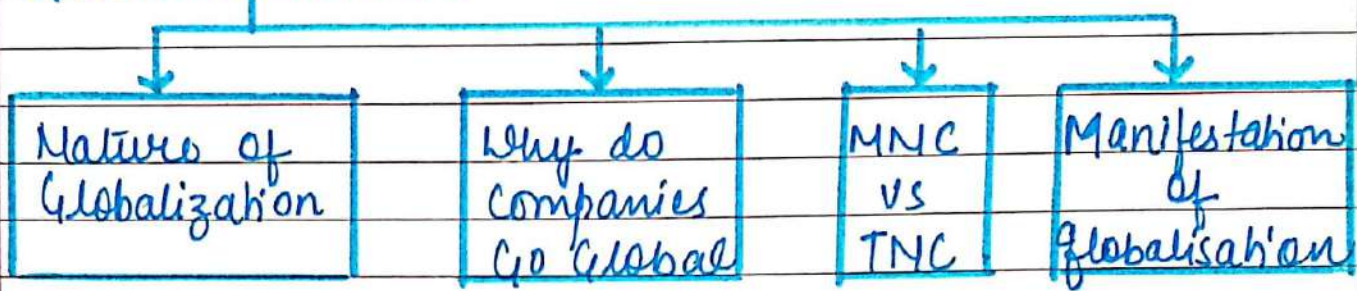 Nature of
Globalization
Why do
Companies
Go Global
MNC
VS
TNC
Manifestation
of
globalisation